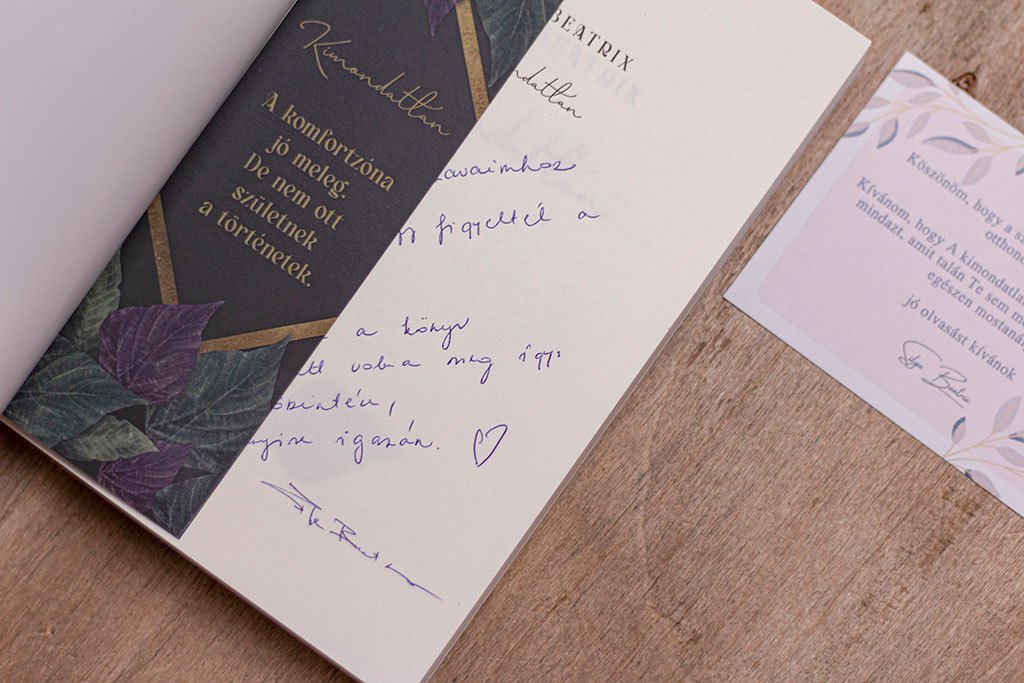 Kimondatlan
A komfortzóna
jó meleg.
De nem ott
születnek
a történetek.
BEATRIX
ndatlan
avaimhoz
figyeltél a
a könyv
volna meg így:
őszintén,
nyire igazán.
Köszönöm, hogy a sz
otthono
Kívánom, hogy A kimondatla
mindazt, amit talán Te sem m
egészen mostanái
jó olvasást kívánok
Beatrix